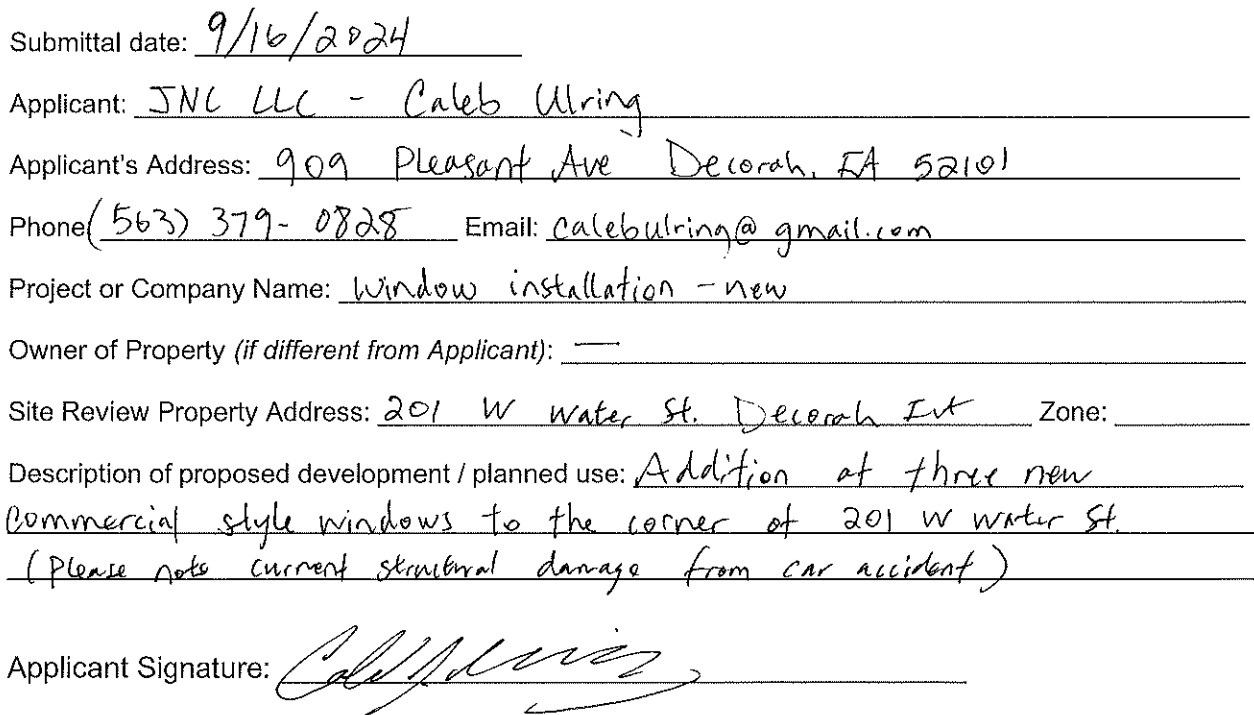 Submittal date: 9/16/2024
Applicant: JNC LLC - Caleb Ulring
Applicant's Address: 909 Pleasant Ave Decorah, IA 52101
Phone (563) 379-0828 Email: calebulring@gmail.com
Project or Company Name: Window installation - new
Owner of Property (if different from Applicant): —
Site Review Property Address: 201 W Water St. Decorah IA Zone:
Description of proposed development / planned use: Addition of three new
commercial style windows to the corner of 201 W Water St.
(Please note current structural damage from car accident)
Applicant Signature: